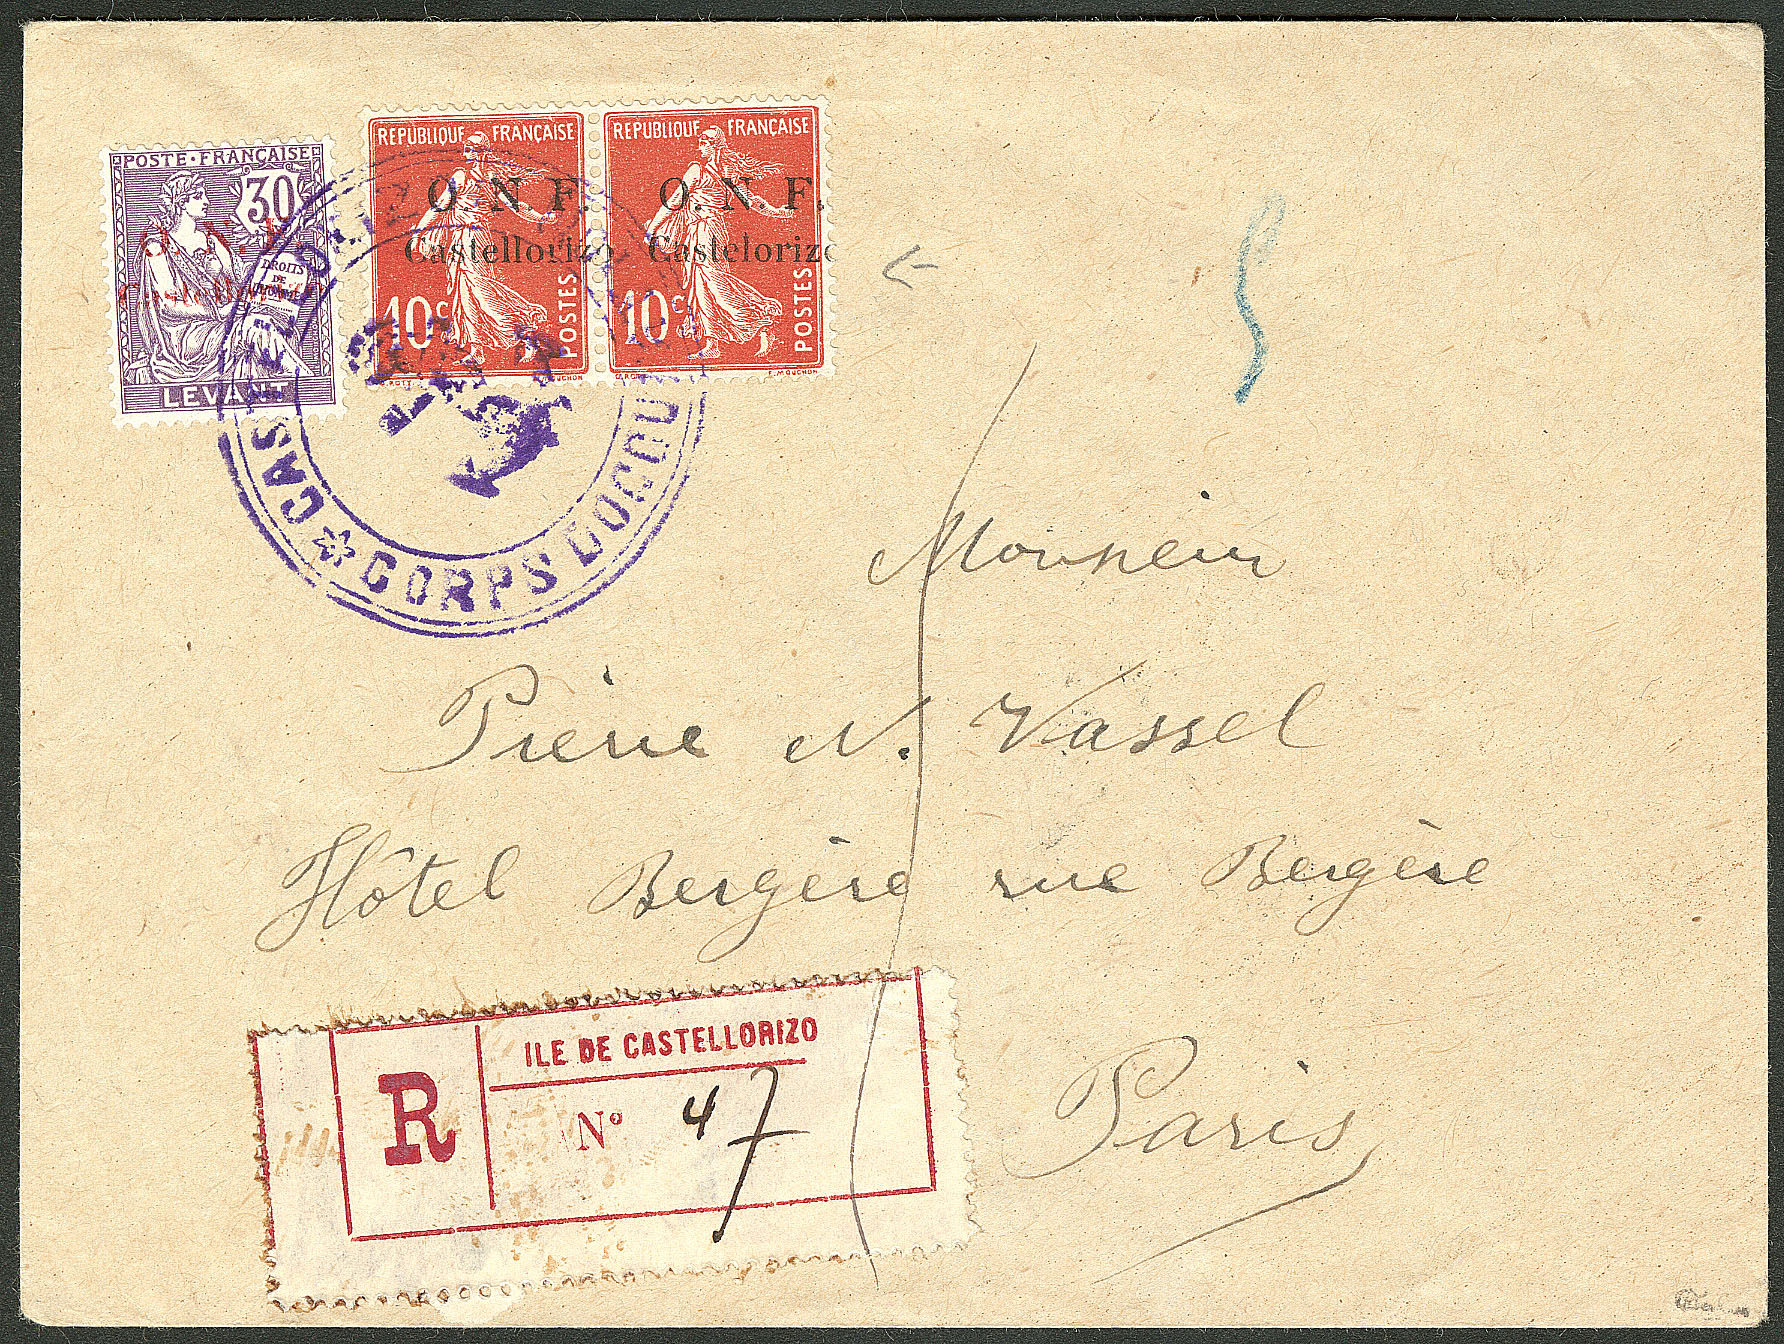 POSTE · FRANÇAISE
30
DROITS
DE
LEVANT
REPUBLIQUE FRANÇAISE
O. N. F.
Castellorizo
10c
POSTES
REPUBLIQUE FRANÇAISE
O. N. F.
Castelorizo
10c
POSTES
E. MOUCHON
CORPS D'OCCU
Monsieur
Pierre N. Vassel
Hôtel Bergère rue Bergère
Paris
ILE DE CASTELLORIZO
R
N° 47